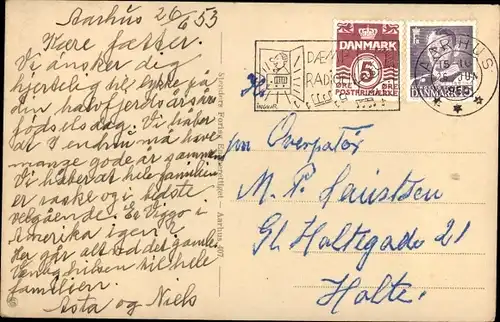 Aarhus 26/6 53
Kære fætter.
Vi ønsker dig
hjertelig til lykke på
din halvfjerdsårs
fødselsdag. Vi håber
at I endnu må have
mange gode år sammen
Vi håber at hele familien
er raske og i bedste
velgående. Er Viggo i
Amerika igen?
Her går alt ved det gamle
Venlig hilsen til hele
familien.
Asta og Niels
Stenders Forlag Eneberettiget — Aarhus 407.
DÆM
RADIO
DANMARK
5
ØRE ØRE
POSTFRIMÆRKE
DANMARK
AARHUS
M. P. Laustsen
Gl. Holtegade 21
Holte.